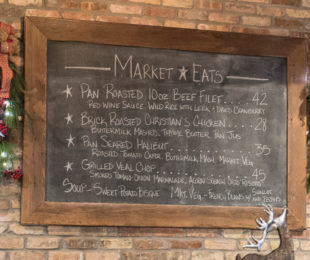 MARKET ★ EATS
★ PAN ROASTED 10OZ BEEF FILET . . . 42
RED WINE SAUCE, WILD RICE WITH LEEK & DRIED CRANBERRY
★ BRICK ROASTED CHRISTIAN'S CHICKEN . . . 28
BUTTERMILK MASHED, THYME BUTTER, PAN JUS
★ PAN SEARED HALIBUT . . . 35
ROASTED TOMATO CAPER, BUTTERMILK MASH, MARKET VEG
★ GRILLED VEAL CHOP . . . 45
SMOKED TOMATO-ONION MARMALADE, ACORN SQUASH
SOUP - SWEET POTATO BISQUE MKT. VEG. -